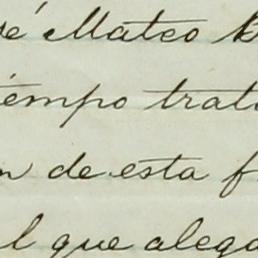 sé Mateo
tiempo trat
n de esta f
l que alega